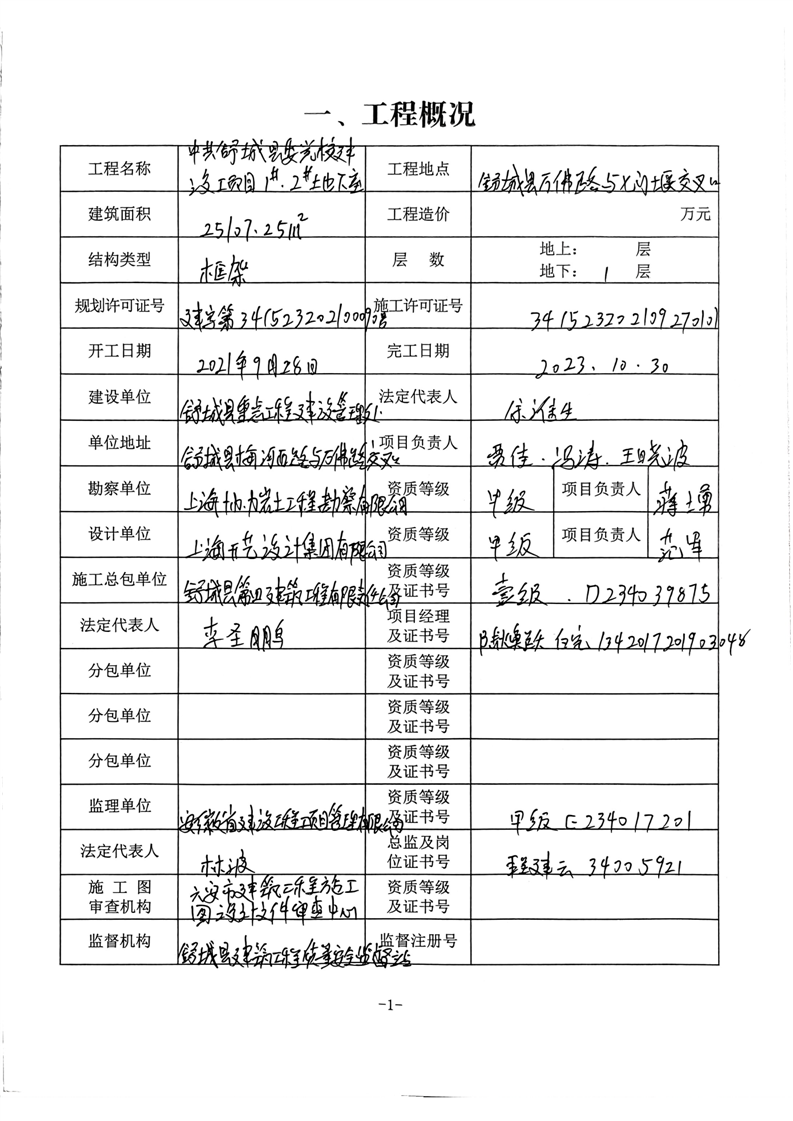 一、工程概况
工程名称 中共舒城县委党校建设工项目1#.2#土地下室 工程地点 舒城县万佛路与 交叉口
建筑面积 25107.25m² 工程造价 万元
结构类型 框架 层 数 地上： 层
地下： 1 层
规划许可证号 建字第341523202100090号 施工许可证号 341523202109270101
开工日期 2021年9月28日 完工日期 2023.10.30
建设单位 舒城县重点工程建设管理处 法定代表人
单位地址 舒城县梅河西路与万佛路交叉口 项目负责人 冯涛.王晓波
勘察单位 上海协力岩土工程勘察有限公司 资质等级 甲级 项目负责人
设计单位 上海开艺设计集团有限公司 资质等级 甲级 项目负责人 范军
施工总包单位 舒城县第四建筑工程有限责任公司 资质等级及证书号 壹级.D234039875
法定代表人 李圣鹏 项目经理及证书号 1342017201903048
分包单位 资质等级及证书号
分包单位 资质等级及证书号
分包单位 资质等级及证书号
监理单位 安徽省建设工程项目管理有限公司 资质等级及证书号 甲级 E234017201
法定代表人 林波 总监及岗位证书号 程建云 34005921
施工图审查机构 六安市建筑工程施工图设计文件审查中心 资质等级及证书号
监督机构 舒城县建筑工程质量安全监督站 监督注册号
-1-